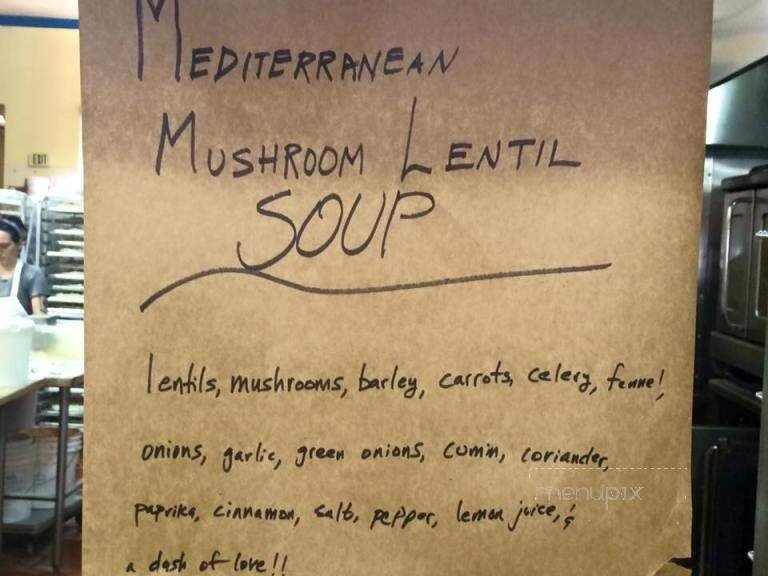 MEDITERRANEAN
MUSHROOM LENTIL
SOUP
lentils, mushrooms, barley, carrots, celery, fennel,
onions, garlic, green onions, cumin, coriander,
paprika, cinnamon, salt, pepper, lemon juice, &
a dash of love!!
EXIT
menupix